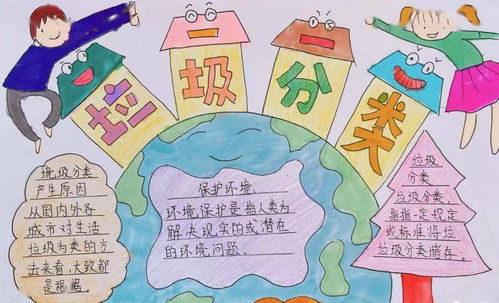 垃圾分类
垃圾分类
产生原因
从国内外各
城市对生活
垃圾为类的方
法来看,大致都
是根据.
保护环境
环境保护是指人类为
解决现实的或潜在
的环境问题.
垃圾
分类
垃圾分类,
指按一定规定
或标准将垃
垃圾分类储存.